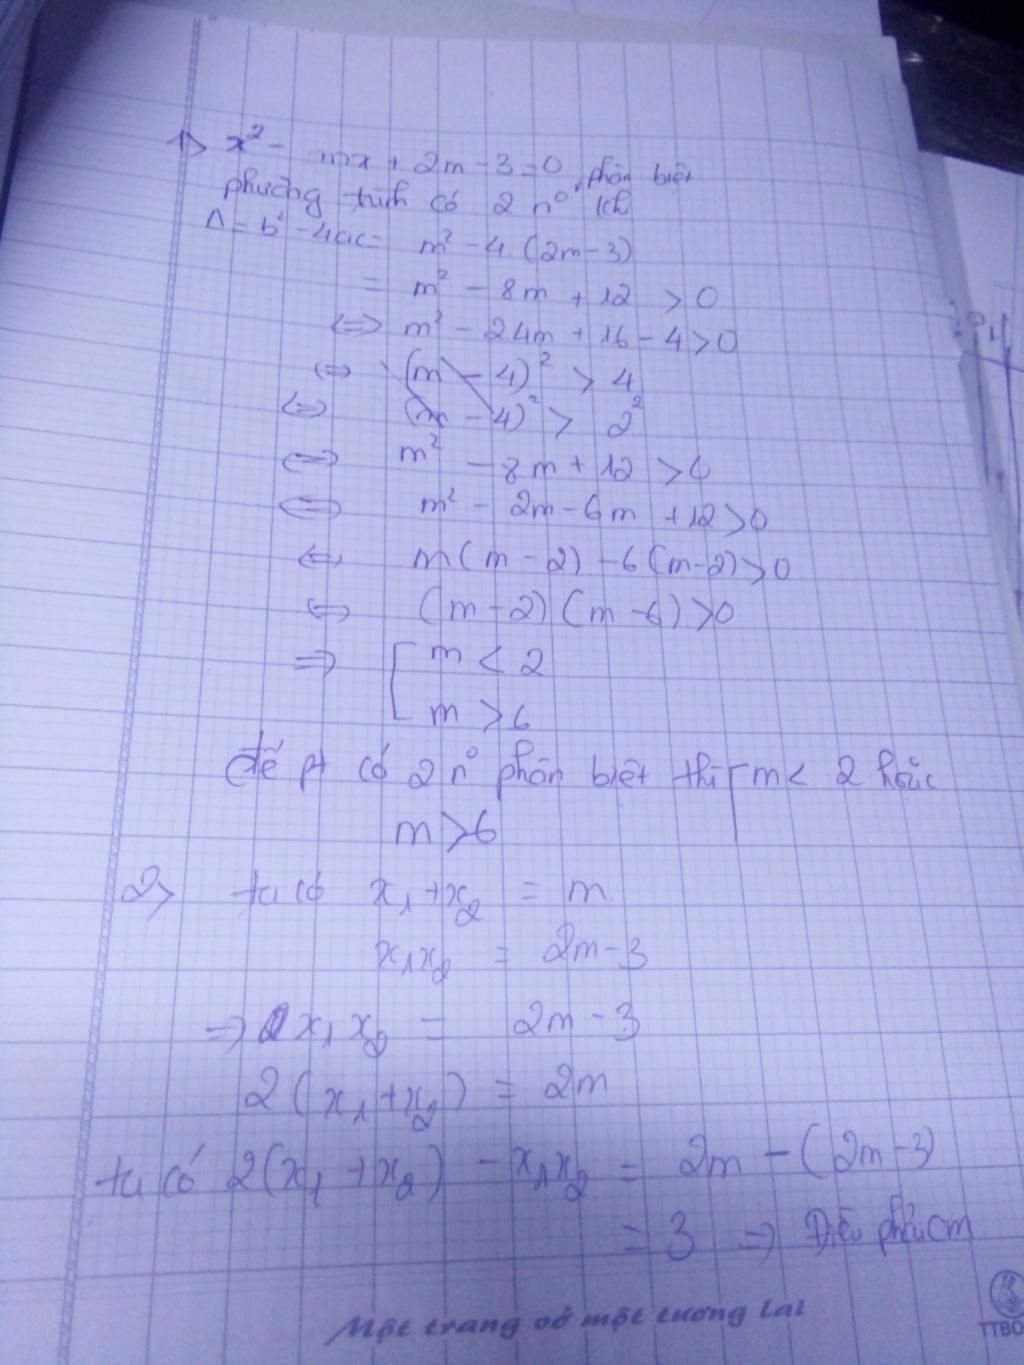 1> x² - mx + 2m - 3 = 0
phương trình có 2 n⁰ phân biệt khi
Δ = b² - 4ac = m² - 4.(2m - 3)
= m² - 8m + 12 > 0
⇔ m² - 2.4m + 16 - 4 > 0
⇔ (m - 4)² > 4
⇔ (m - 4)² > 2²
⇔ m² - 8m + 12 > 0
⇔ m² - 2m - 6m + 12 > 0
⇔ m(m - 2) - 6(m - 2) > 0
⇔ (m - 2)(m - 6) > 0
⇒ [ m < 2
m > 6
để pt có 2 n⁰ phân biệt thì [ m < 2 hoặc
m > 6
2> ta có x₁ + x₂ = m
x₁x₂ = 2m - 3
⇒ x₁x₂ = 2m - 3
2(x₁ + x₂) = 2m
ta có 2(x₁ + x₂) - x₁x₂ = 2m - (2m - 3)
= 3 ⇒ Điều phải cm
Một trang vở một tương lai
TTBO